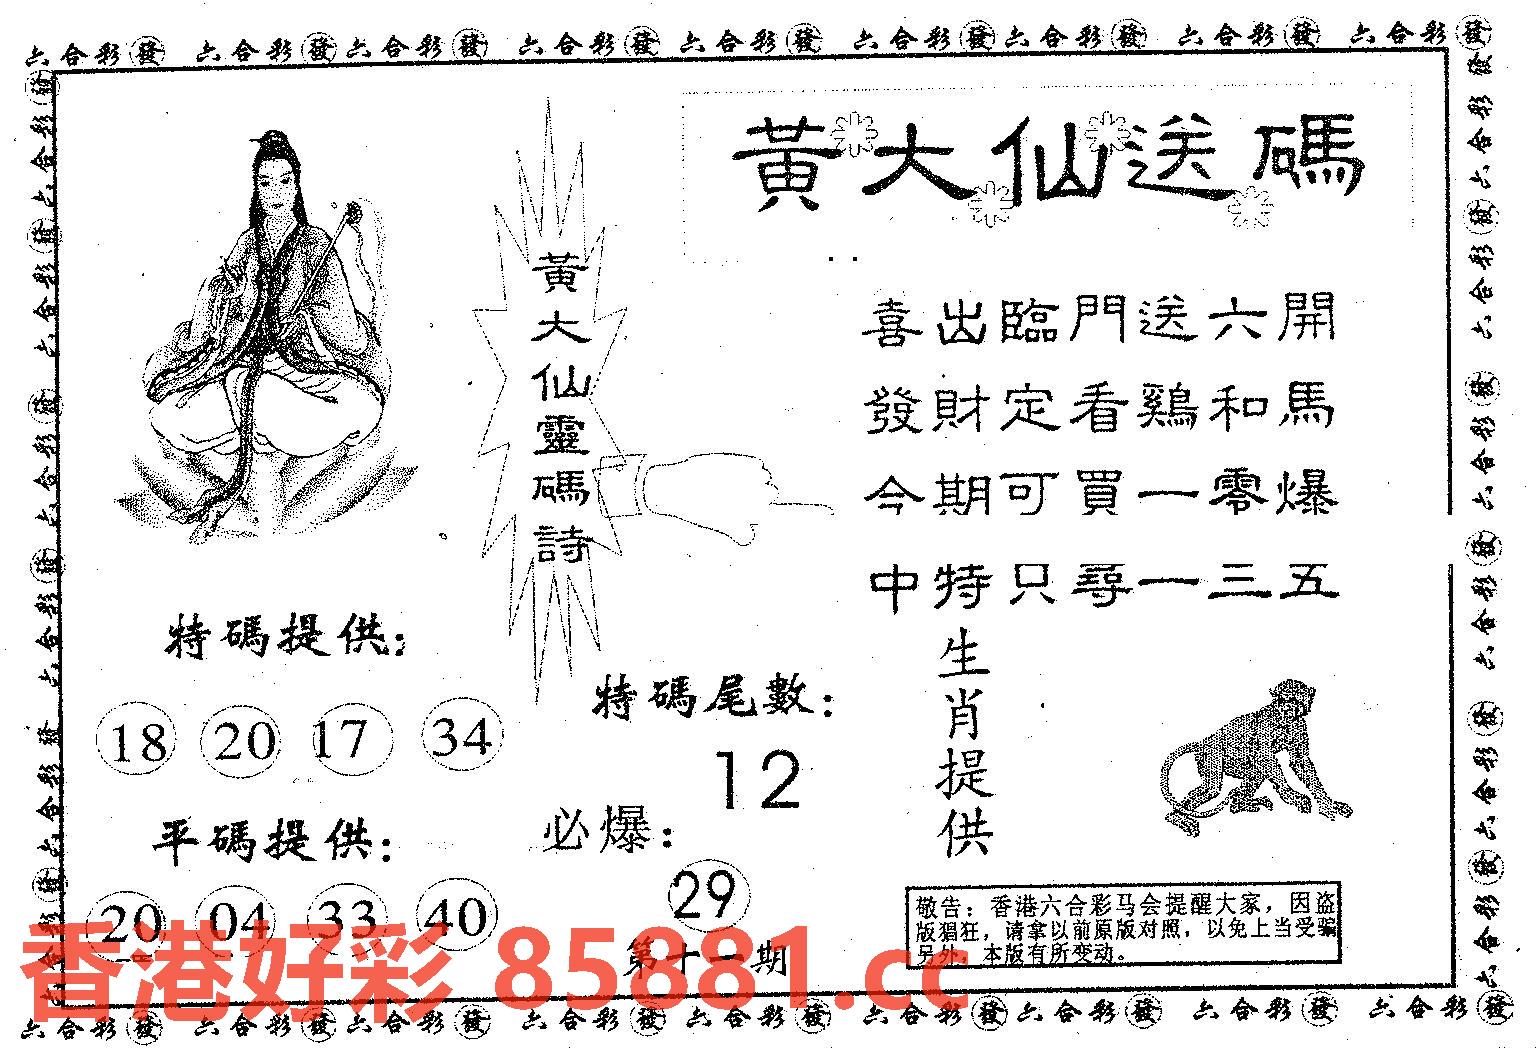 六合彩發 六合彩發 六合彩發 六合彩發 六合彩發 六合彩發 六合彩發 六合彩發 六合彩發
黃大仙送碼
黃大仙靈碼詩
喜出臨門送六開
發財定看鷄和馬
今期可買一零爆
中特只尋一三五
特碼提供：
18 20 17 34
平碼提供：
20 04 33 40
特碼尾數：
12
必爆：
29
第十一期
生肖提供
敬告：香港六合彩马会提醒大家，因盗
版猖狂，请拿以前原版对照，以免上当受骗
另外，本版有所变动。
香港好彩 85881.cc
六合彩發 六合彩發 六合彩發 六合彩發 六合彩發 六合彩發 六合彩發 六合彩發 六合彩發